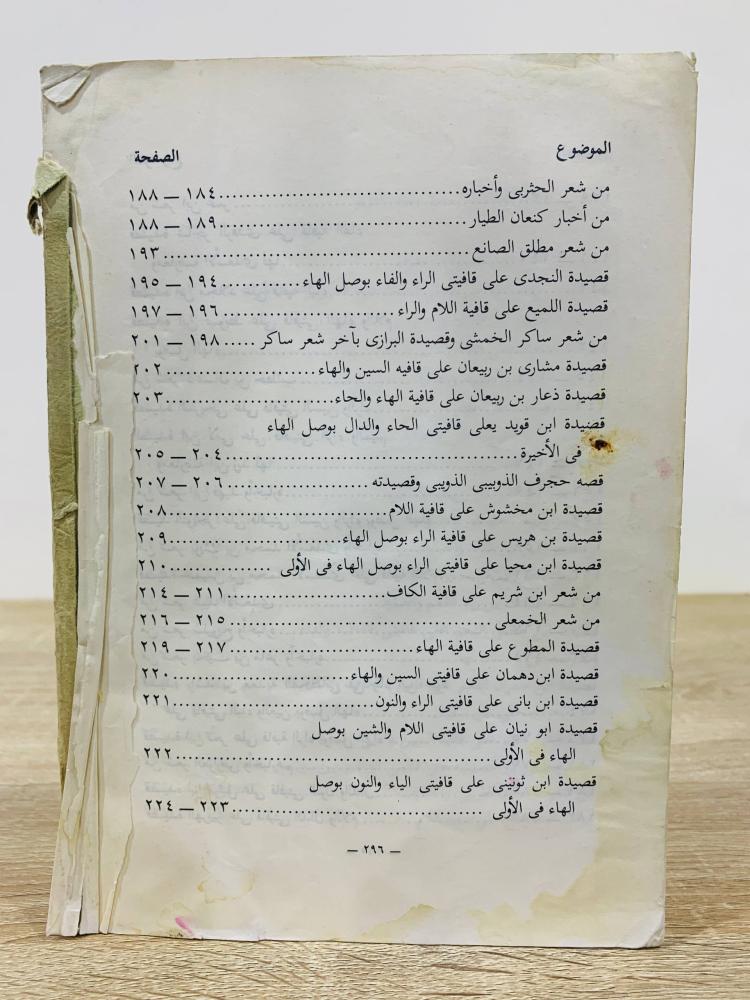 الموضوع الصفحة
من شعر الحثربى وأخباره ١٨٤ — ١٨٨
من أخبار كنعان الطيار ١٨٩ — ١٨٨
من شعر مطلق الصانع ١٩٣
قصيدة النجدى على قافيتى الراء والفاء بوصل الهاء ١٩٤ — ١٩٥
قصيدة اللميع على قافية اللام والراء ١٩٦ — ١٩٧
من شعر ساكر الخمشى وقصيدة البرازى بآخر شعر ساكر ١٩٨ — ٢٠١
قصيدة مشارى بن ربيعان على قافيه السين والهاء ٢٠٢
قصيدة ذعار بن ربيعان على قافية الهاء والحاء ٢٠٣
قصيدة ابن قويد يعلى قافيتى الحاء والدال بوصل الهاء
فى الأخيرة ٢٠٤ — ٢٠٥
قصه حجرف الذويبى الذويبى وقصيدته ٢٠٦ — ٢٠٧
قصيدة ابن مخشوش على قافية اللام ٢٠٨
قصيدة بن هريس على قافية الراء بوصل الهاء ٢٠٩
قصيدة ابن محيا على قافيتى الراء بوصل الهاء فى الأولى ٢١٠
من شعر ابن شريم على قافية الكاف ٢١١ — ٢١٤
من شعر الخمعلى ٢١٥ — ٢١٦
قصيدة المطوع على قافية الهاء ٢١٧ — ٢١٩
قصيدة ابن دهمان على قافيتى السين والهاء ٢٢٠
قصيدة ابن بانى على قافيتى الراء والنون ٢٢١
قصيدة ابو نيان على قافيتى اللام والشين بوصل
الهاء فى الأولى ٢٢٢
قصيدة ابن ثوتينى على قافيتى الياء والنون بوصل
الهاء فى الأولى ٢٢٣ — ٢٢٤
— ٢٩٦ —